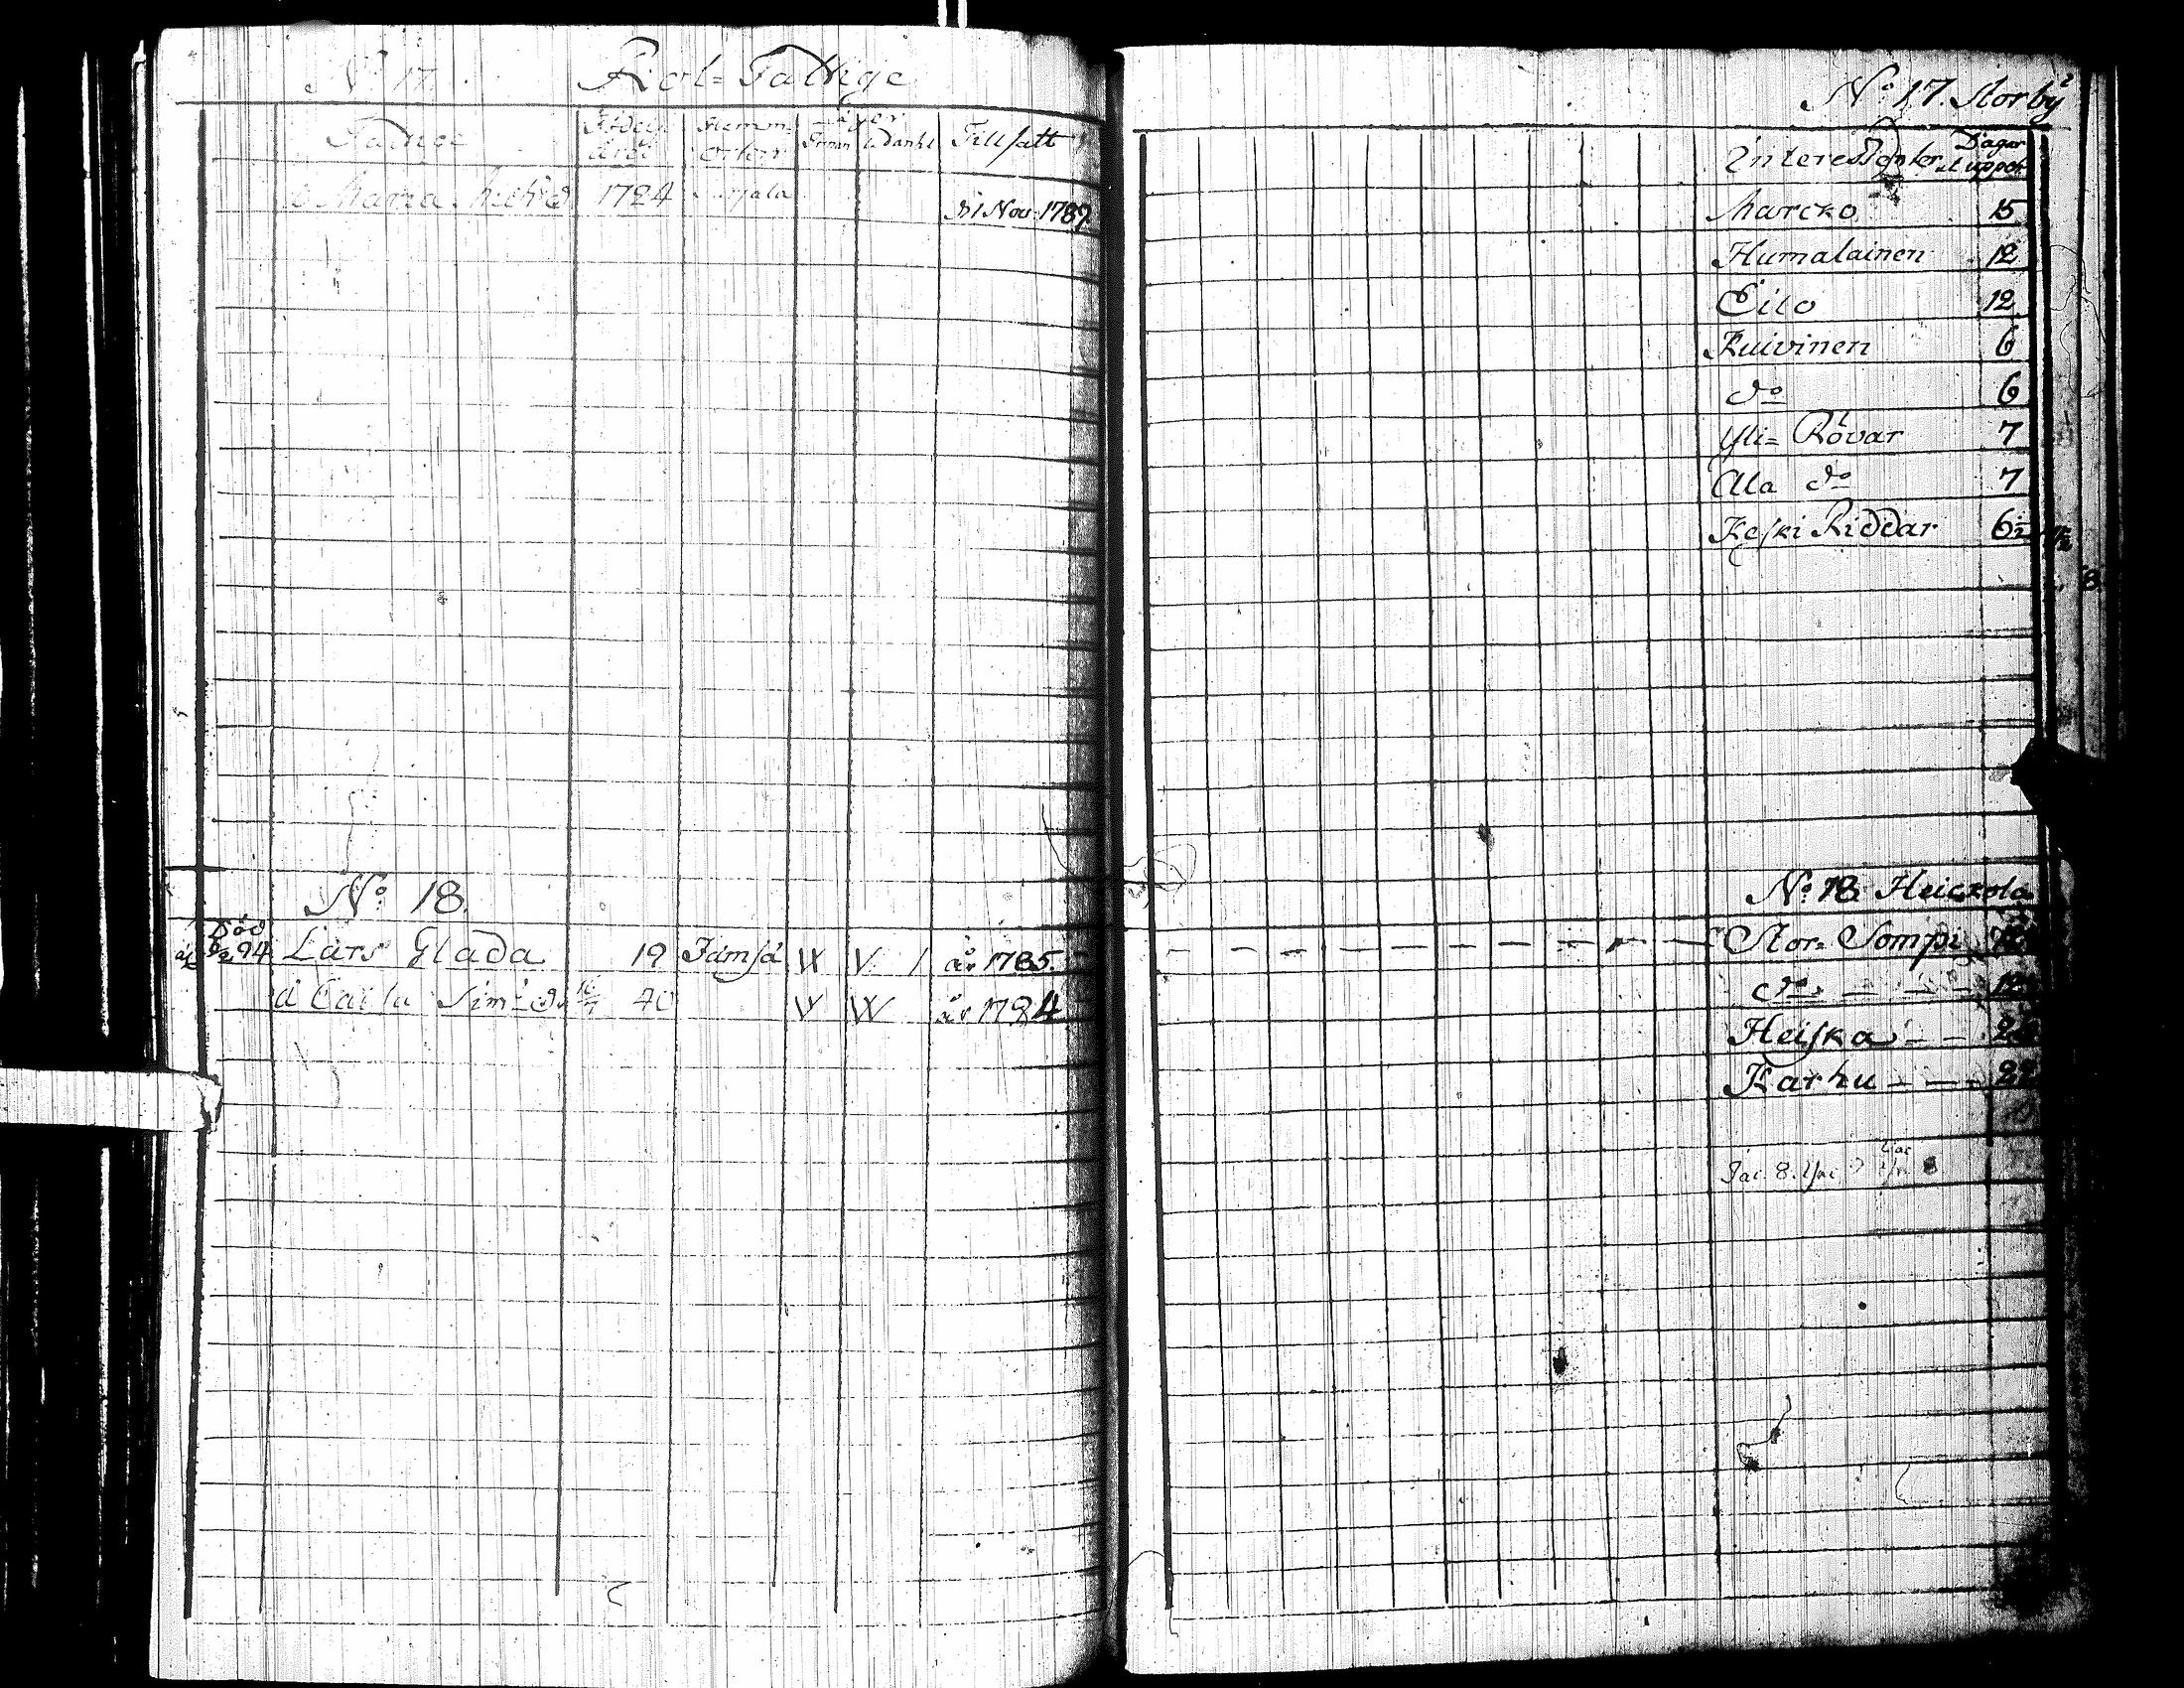 No 17. Rol= Fattige
Fattige Födelse året Hemm= orten äger Förman ledande Tillsatt
Maria 1724 d 1 Nov. 1789
No: 18.
Död 94 Lars Glada 19 Jämsä W V år 1785.
Caisa Sim:s d:r 40 V W år 1784
No: 17. Storby
Interessenter Dagar at uppeh
Marcko 15
Humalainen 12
Eilo 12
Kuivinen 6
do 6
Yli= Rövar 7
Ala do 7
Keski Riddar 6 1/2
No: 18 Heickola
Stor= Sompi 12
do 12
Heiska
Karhu 22